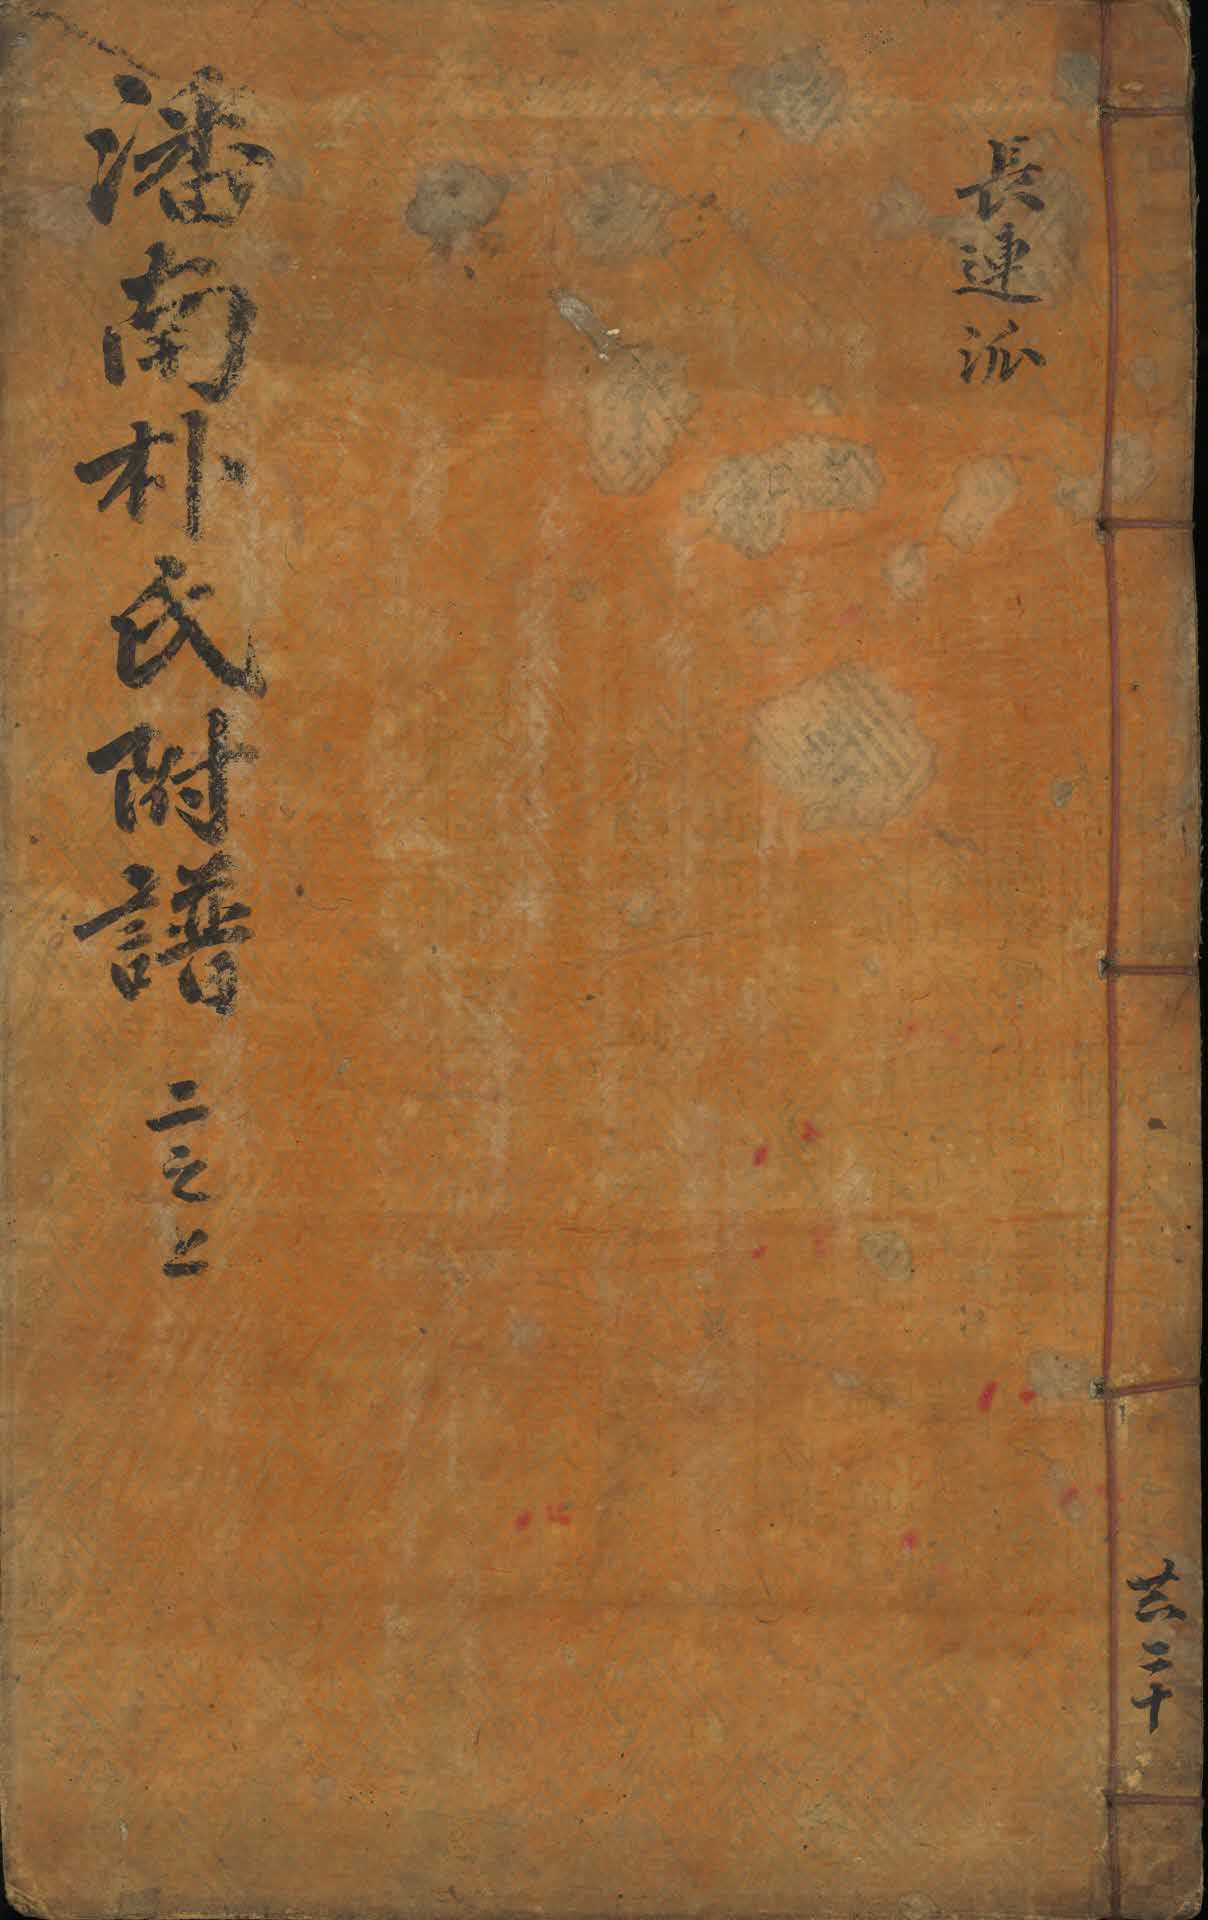 長連派
潘南朴氏附譜 二之上
共二十